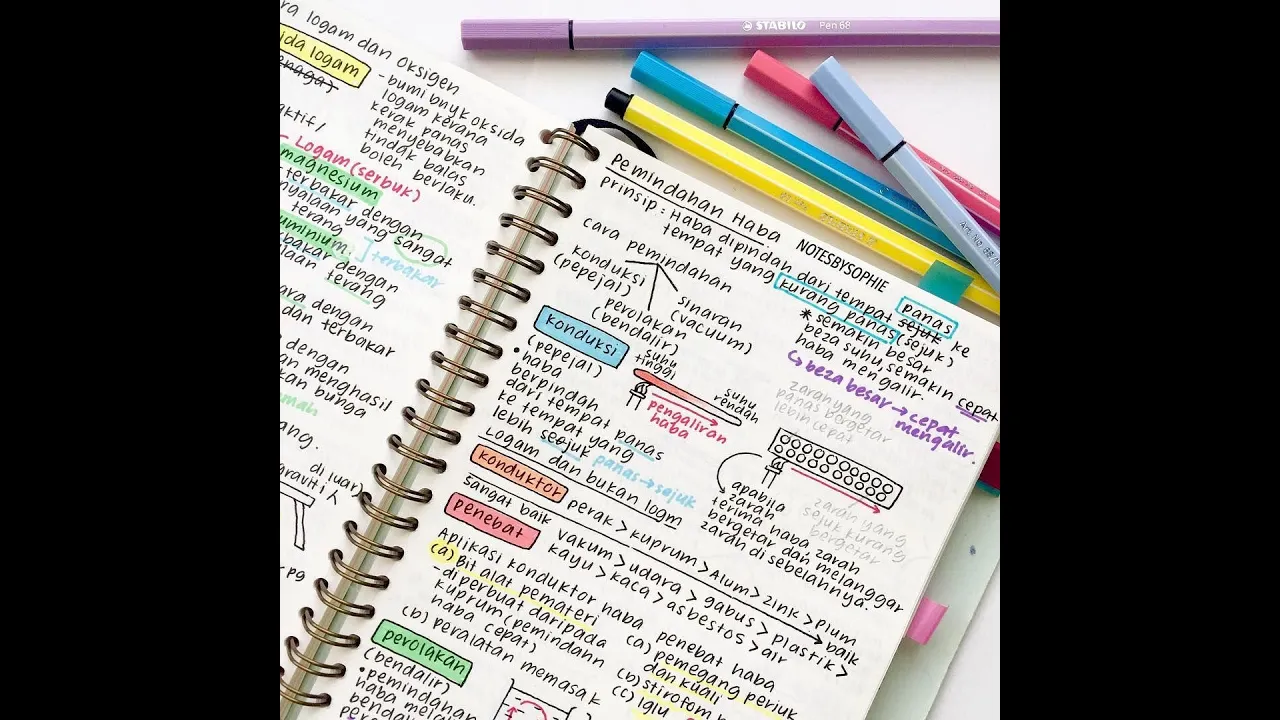 ra logam dan oksigen
ida logam
enaga)
- bumi bnyk oksida
logam kerana
kerak panas
menyebabkan
tindak balas
boleh berlaku.
aktif/
Logam (serbuk)
magnesium
terbakar dengan
nyalaan yang sangat
terang
uminium
bakar dengan
laan terang
terbakar
ara dengan
dan terbakar
dengan
an menghasil
kan bunga
mah
ang.
di luar)
graviti
pg
STABILO Pen 68
Pemindahan Haba
NOTESBYSOPHIE
Prinsip : Haba dipindah dari tempat panas sejuk ke
tempat yang kurang panas (sejuk)
* semakin besar
beza suhu, semakin cepat
haba mengalir.
beza besar → cepat
mengalir.
cara pemindahan
konduksi
(pepejal)
perolakan
(bendalir)
sinaran
(vacuum)
konduksi
(pepejal)
• haba
berpindah
dari tempat panas
ke tempat yang
lebih seejuk
panas → sejuk
suhu
tinggi
suhu
rendah
pengaliran
haba
zarah yang
panas bergetar
lebih cepat
apabila
zarah
terima haba zarah
bergetar dan melanggar
zarah di sebelahnya.
zarah yang
sejuk kurang
bergetar
Logam dan bukan logm
konduktor
perak > kuprum > Alum > zink > plum
sangat baik
baik
penebat
vakum > udara > gabus > plastik >
kayu > kaca > asbestos > air
Aplikasi konduktor haba
(a) Bit alat pemateri
- diperbuat daripada
kuprum (pemindahn
haba cepat)
(b) peralatan memasak
penebat haba
(a) pemegang periuk
dan kuali
(b) stirofom
(c) iglu
perolakan
(bendalir)
• pemindahan
haba melal